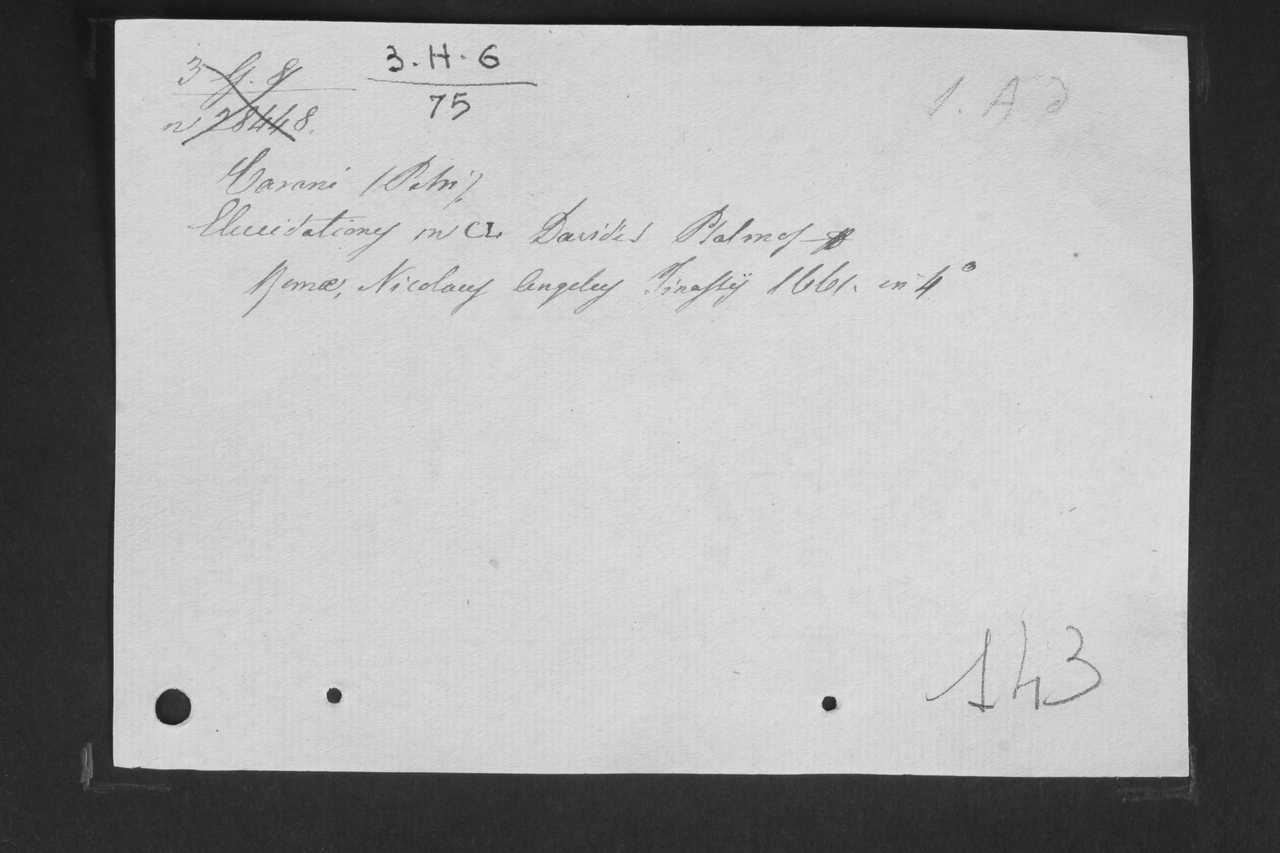 3 G. 8
n 28448.
3. H. 6
75
1. A d
Carani (Petri)
Elucidationes in CL Davidis Psalmos
Romæ, Nicolaus Angelus Tinassij 1661. in 4°
143